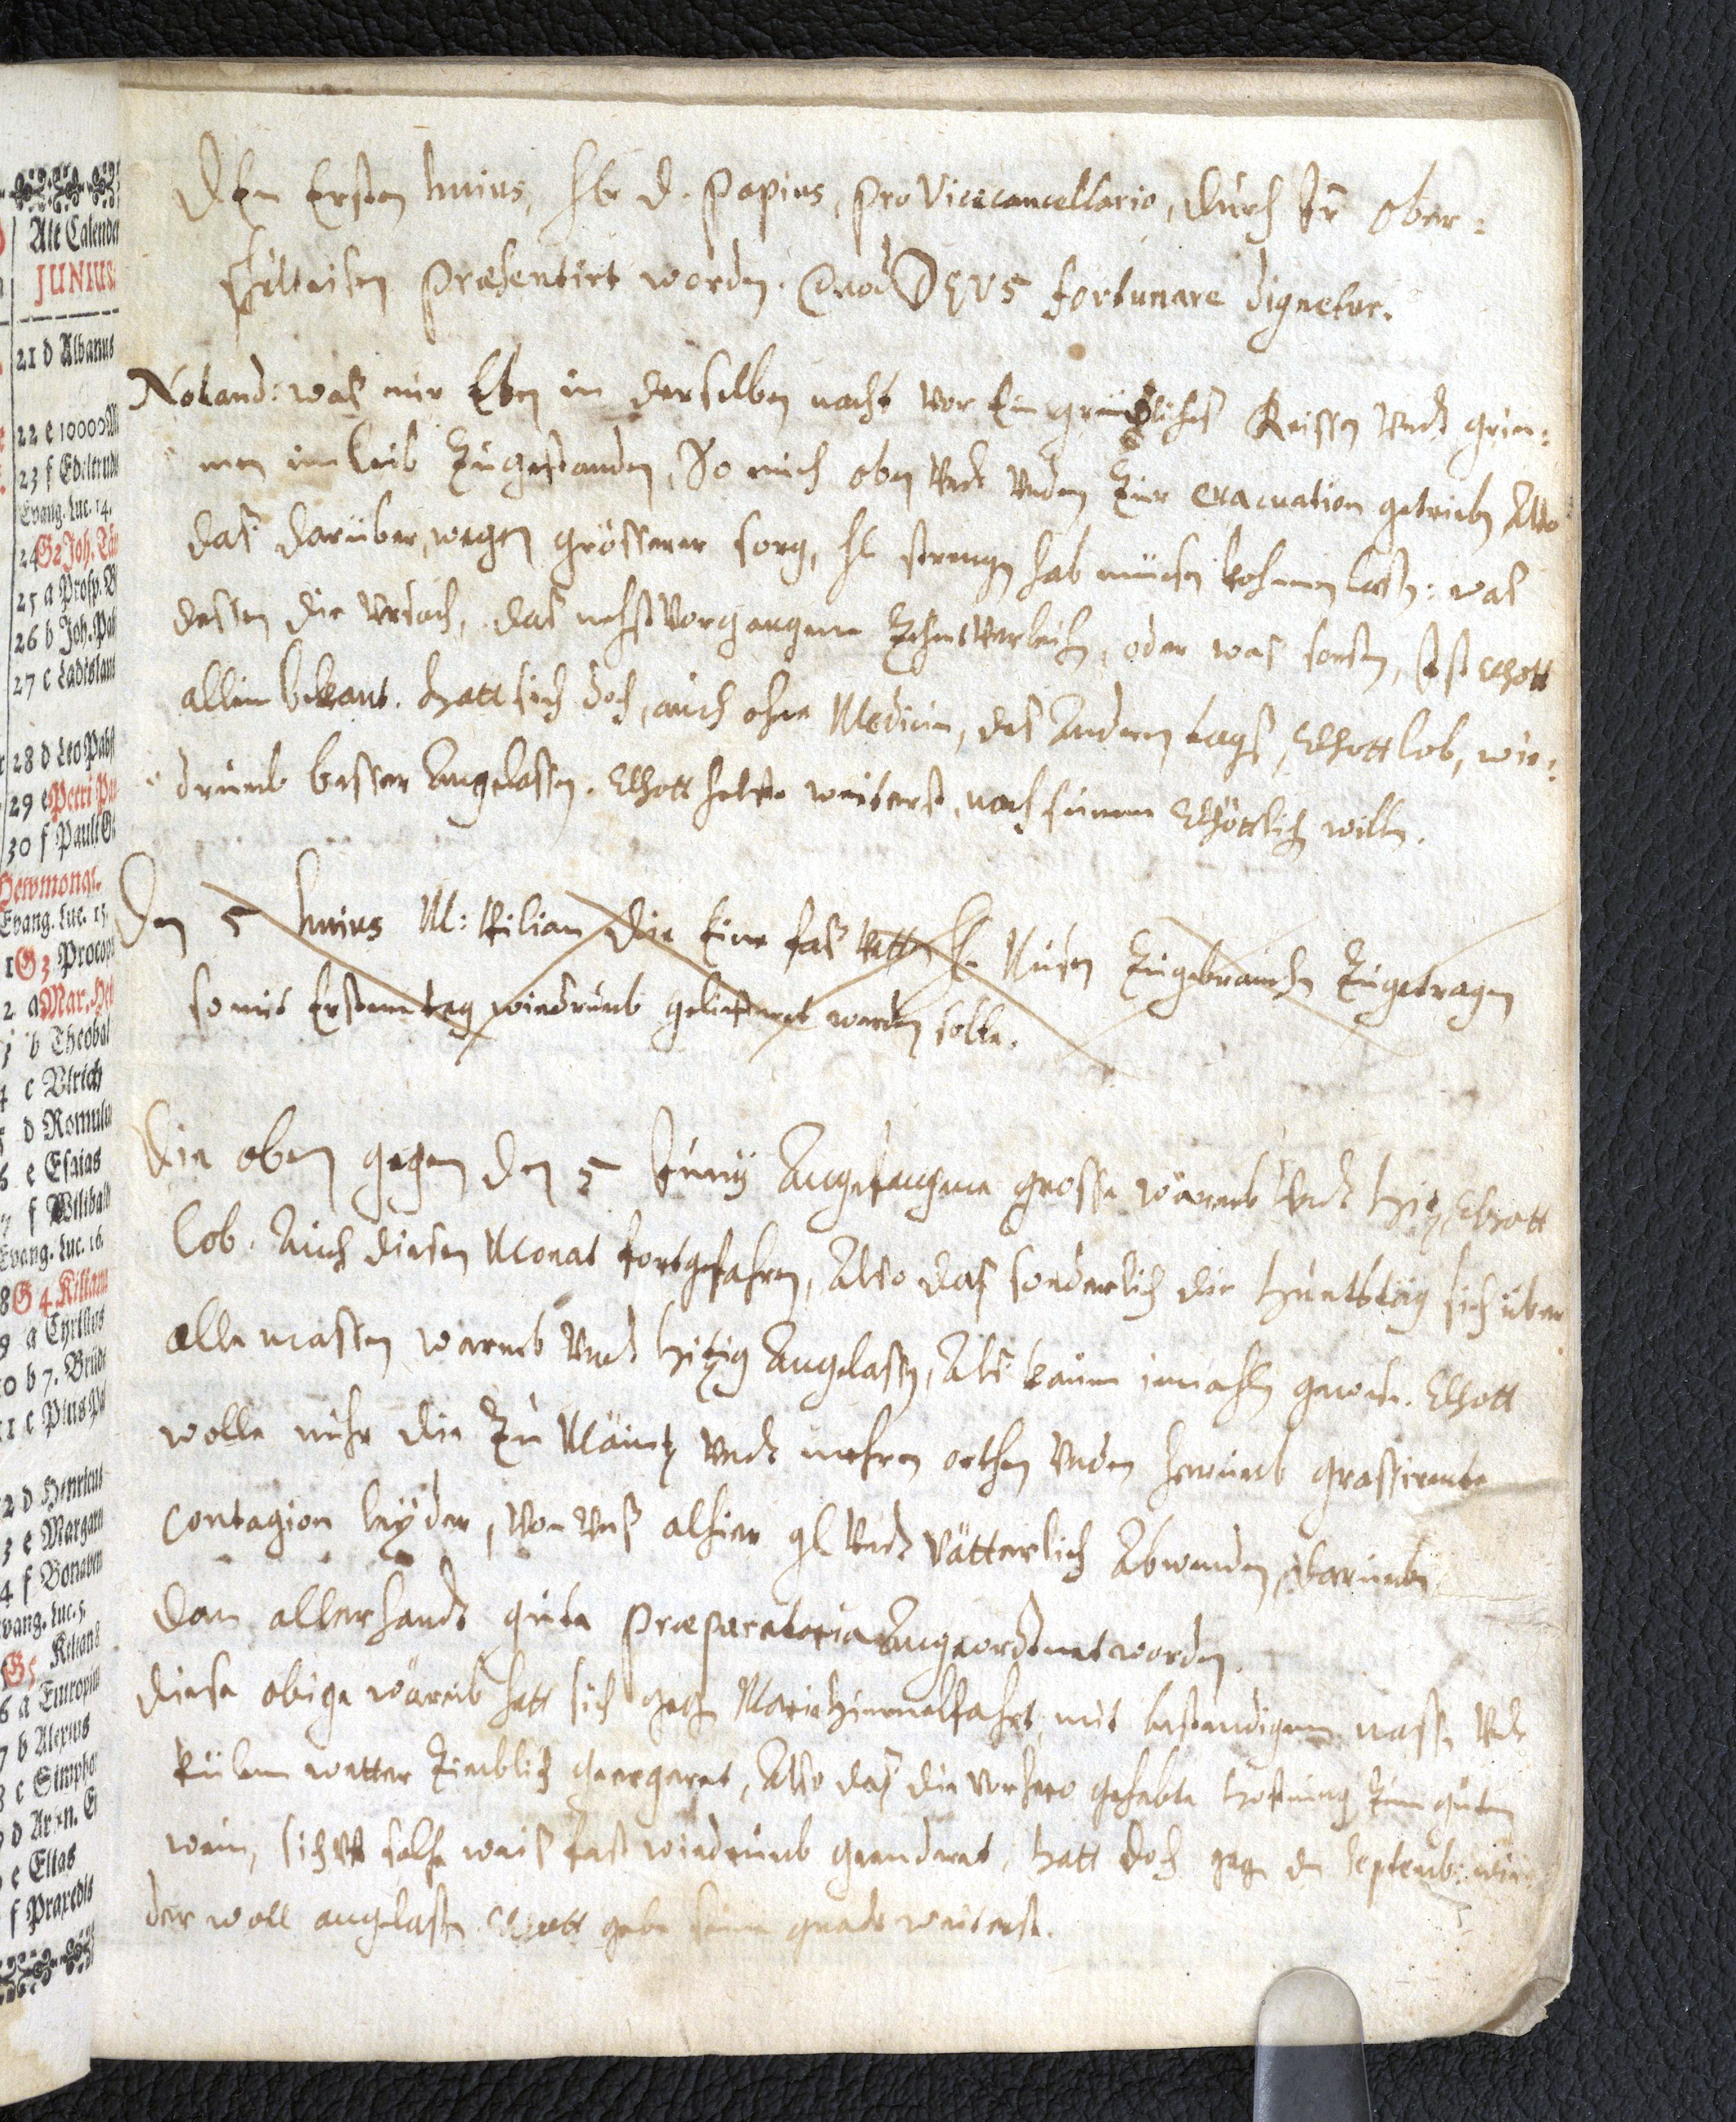 Alt Calender
JUNIUS.
21 d Albanus
22 e 10000 M
23 f Edeltrud
Evang. Luc. 14.
24 G 2 Joh. Tä
25 a Prosp. B
26 b Joh. Pa
27 c Ladislaus
28 d Leo Pabst
29 e Petri Pa
30 f Pauli G
Hewmonat.
Evang. Luc. 15.
1 G 3 Procop
2 a Mar. He
3 b Theobal
4 c Ulrich
5 d Romulus
6 e Esaias
7 f Wilibald
Evang. Luc. 16.
8 G 4 Kiliani
9 a Cyrillus
10 b 7. Brüde
11 c Pius Pa
12 d Henricus
13 e Margare
14 f Bonaven
Evang. Luc. 5.
G 5
6 a
7 b Alexius
8 c Simpho
9 d Arn. E
e Elias
f Praxedis
Den Ersten huius, Hr D. Papius, pro Vicecancellario, durch Hr Ober:
schulteisen præsentirt worden. Quod DEUS fortunare dignetur.
Notand: was mir Eben in derselben nacht vor Ein greuliches Reissen undt grim:
men im leib zugestanden, So mich oben undt unden zur evacuation getrieben, Also
das darüber, wegen grösserer sorg, hab müesen kohmen lassen: was
dessen die ursach, das nechst vorgangene oder was sonsten, Ist Gott
allein bekant. Hatt sich doch, auch ohne Medicin, des Andern tags, Gott lob, wie:
drumb besser Angelassen. Gott helffe weiterst, nach seinem Göttlichen willen.
Den 5 huius M: Kilian die Eine fas zugetragen
so mit Erstem tag wiedrumb geliefferet werden solle.
Die oben gegen den 5 Junij Angefangene grosse wärmb undt Hitz Gott
lob. Auch diesen Monat fortgefahren, Also das sonderlich die Huntstäg sich über
alle massen warmb undt hitzig Angelassen, Als kaum iemahln gewesen. Gott
wolle nuhr die zu Mäintz undt mehren orthen unden herumb grassirente
contagion leyder, von uns alhier gl undt vätterlich Abwenden, darumben
dan allerhandt gute præparatoria Angeordtnet worden.
Diese obige wärmb hatt sich gegen Mariæ Himmelfahrt, mit bestendigem nassen undt
külem wetter zimblich geergeret, Also das die vorhero gehabte Hoffnung zum guten
wein, sich solcher weis fast wiedrumb geendret, Hatt doch gegen den Septemb: wie:
der woll angelassen. Gott gebe seine gnade weiterst.